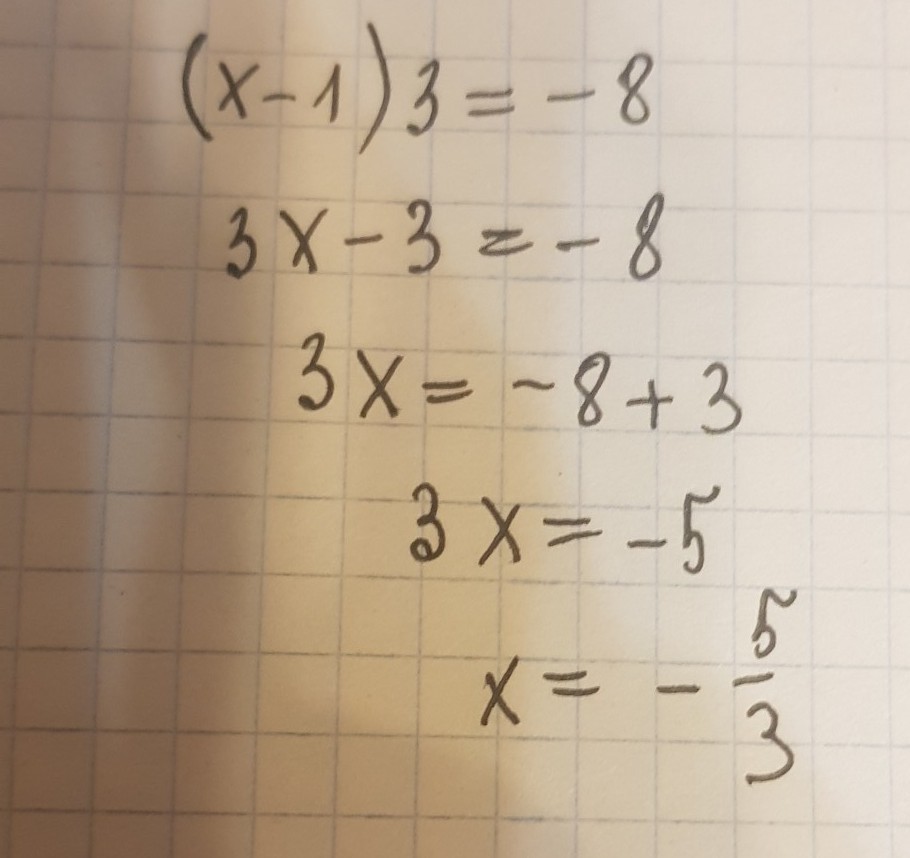 (x-1)3=-8
3x-3=-8
3x=-8+3
3x=-5
x=-5/3